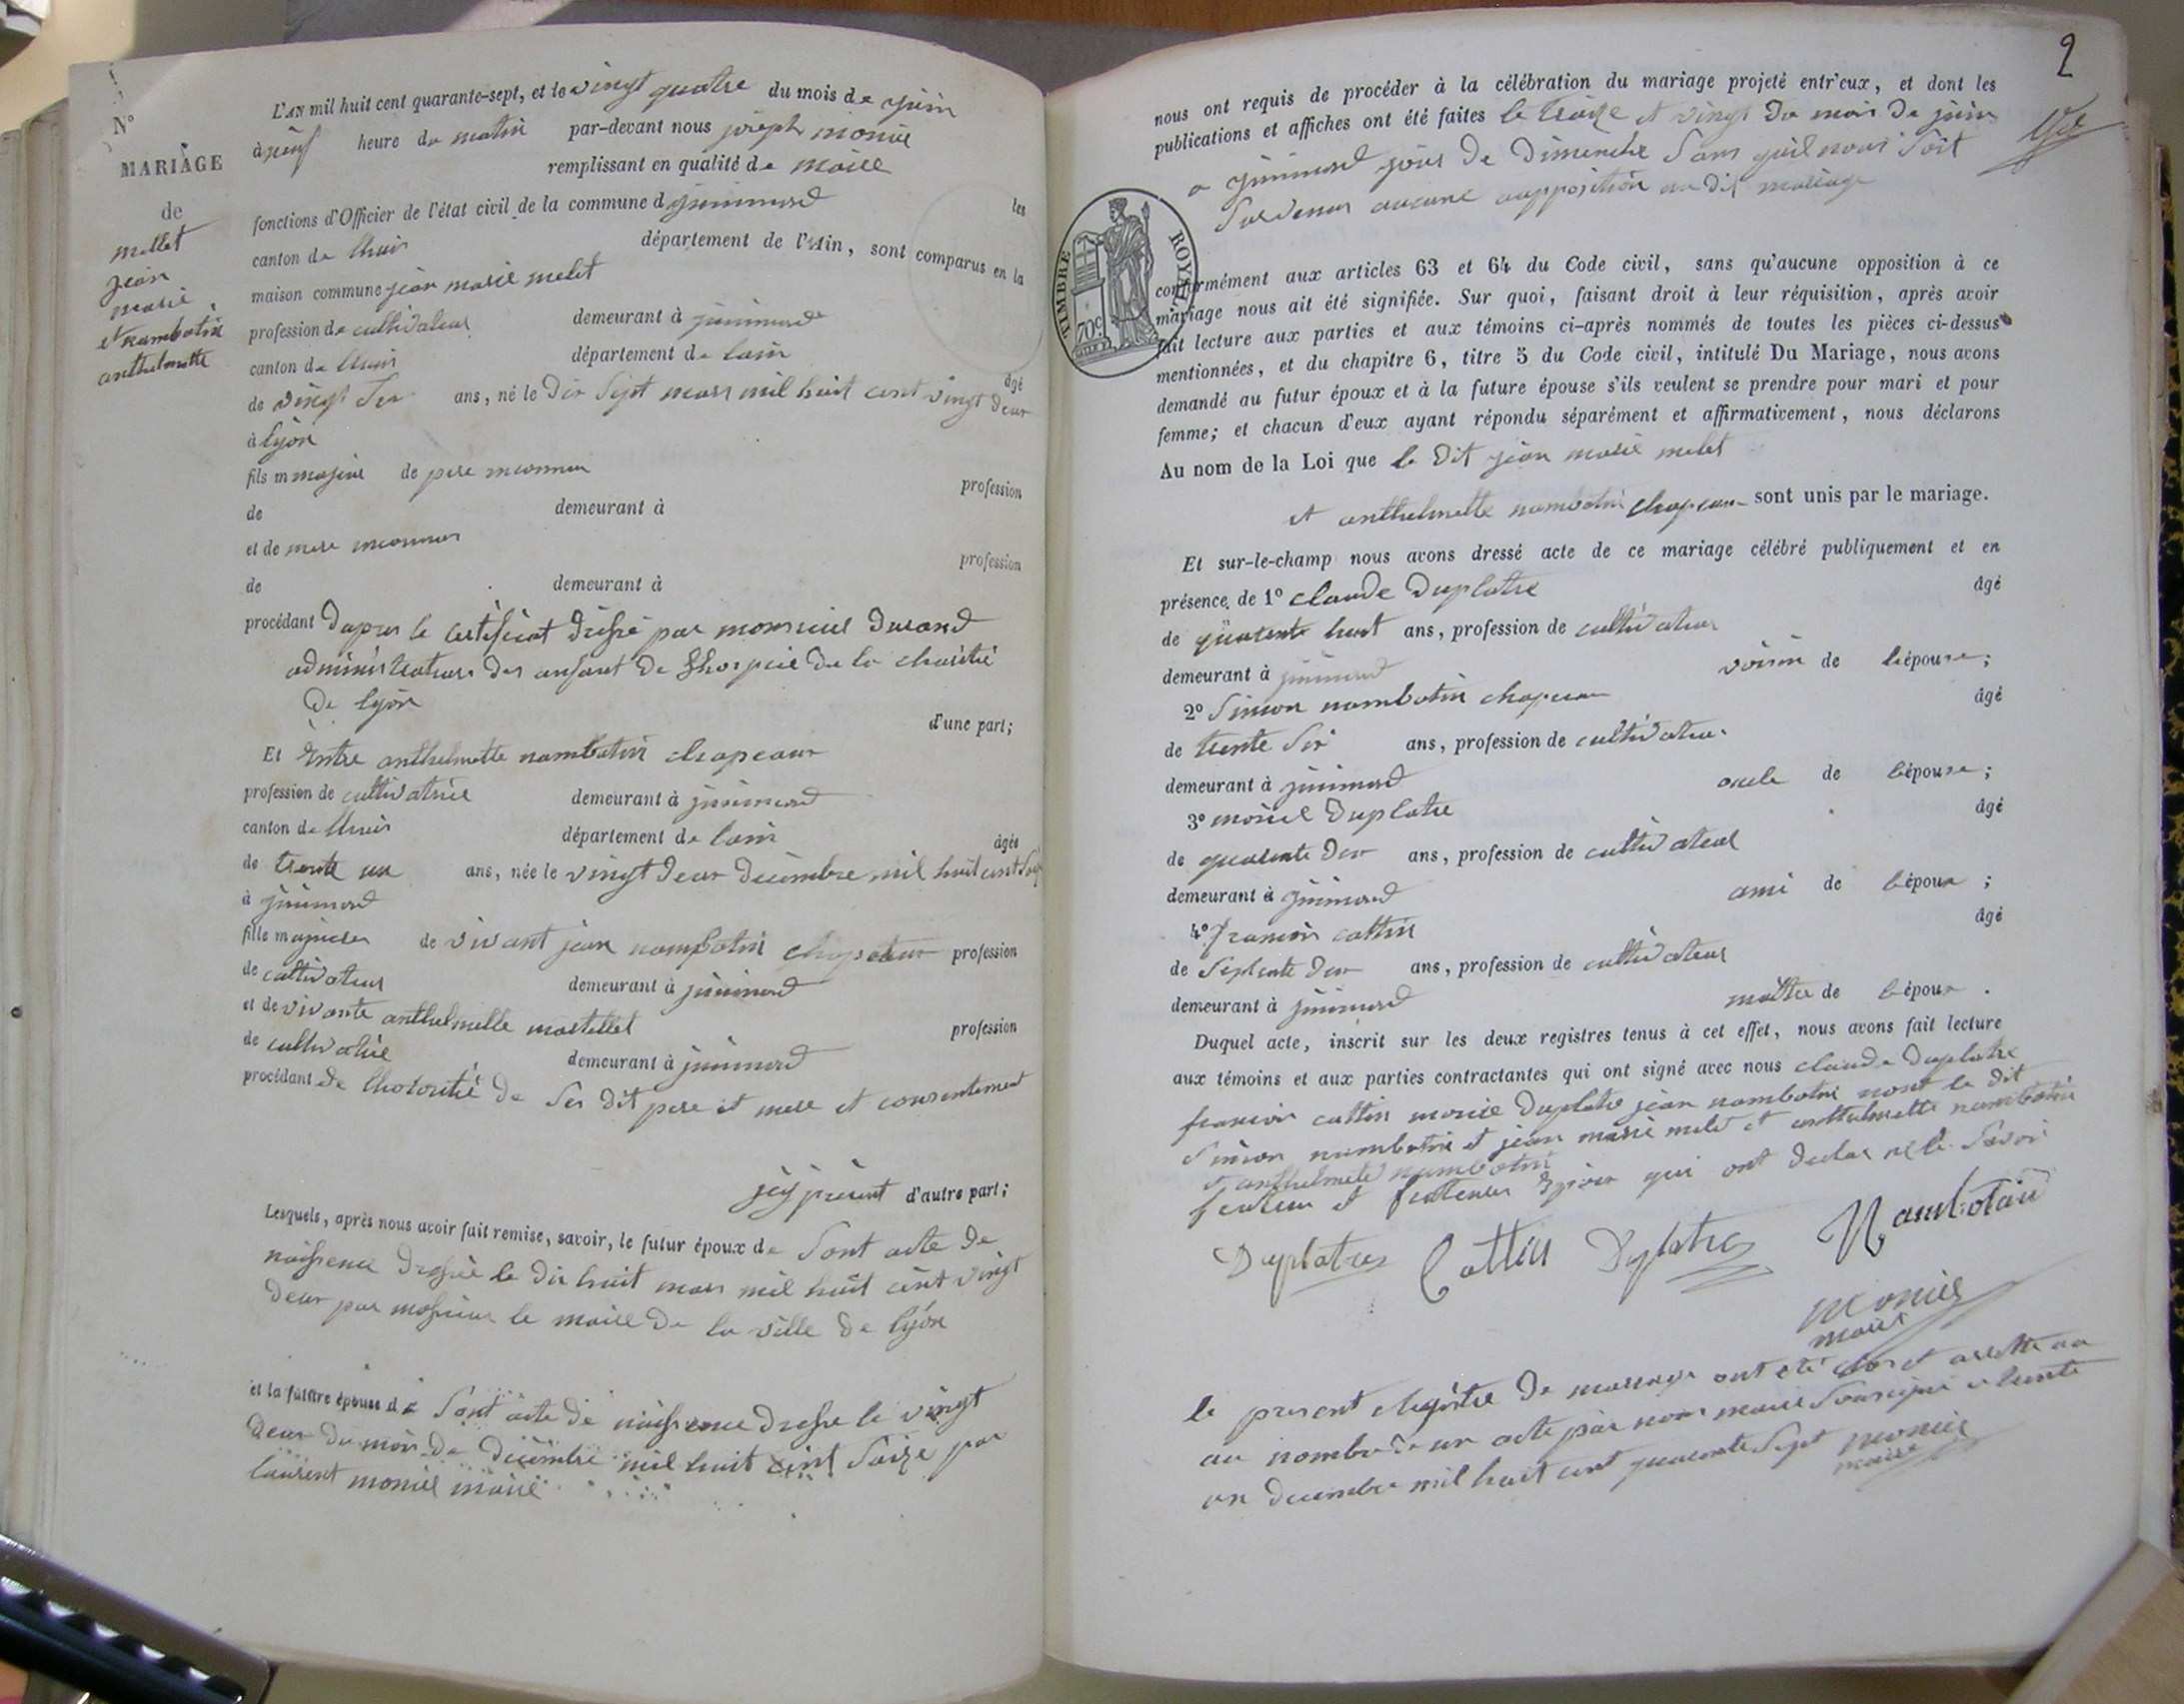 N°
MARIAGE
de
mellet
jean
marie
et nambotin
anthelmette
L'AN mil huit cent quarante-sept, et le vingt quatre du mois de juin
à neuf heure du matin par-devant nous joseph monier
remplissant en qualité de maire
fonctions d'Officier de l'état civil de la commune d jujurieu les
canton de lhuis département de l'Ain, sont comparus en la
maison commune jean marie melet
profession de cultivateur demeurant à
canton de lhuis département de lain
âgé
de vingt ans, né le dix sept mars mil huit cent vingt deux
à lyon
fils majeur de pere inconnu
profession
de demeurant à
et de mere inconnue
profession
de demeurant à
procédant dapres le certificat dressé par monsieur durand
administrateur des enfant de lhospice de la charité
de lyon
d'une part;
Et entre anthelmette nambotin chapeaux
profession de cultivatrice demeurant à
canton de lhuis département de lain
âgée
de trente un ans, née le vingt deux décembre mil huit cent
à
fille majeure de vivant jean nambotin chapeau profession
de cultivateur demeurant à
et de vivante anthelmette martellet
profession
de cultivatrice demeurant à
procédant de lhotorité de ses dit pere et mere et consentement
présent d'autre part;
Lesquels, après nous avoir fait remise, savoir, le futur époux de sont acte de
naissence dressé le dix huit mars mil huit cent vingt
deux par mossieur le maire de la ville de lyon
et la future épouse de sont acte de naissence dressé le vingt
deux du mois de décembre mil huit cent saize par
laurent monier maire
2
nous ont requis de procéder à la célébration du mariage projeté entr'eux, et dont les
publications et affiches ont été faites le traize et vingt du mois de juin
a jour de dimenche sans quil nous soit
survenus aucune aupposition au dit mariage
TIMBRE ROYAL
70 c
conformément aux articles 63 et 64 du Code civil, sans qu'aucune opposition à ce
mariage nous ait été signifiée. Sur quoi, faisant droit à leur réquisition, après avoir
fait lecture aux parties et aux témoins ci-après nommés de toutes les pièces ci-dessus
mentionnées, et du chapitre 6, titre 5 du Code civil, intitulé Du Mariage, nous avons
demandé au futur époux et à la future épouse s'ils veulent se prendre pour mari et pour
femme; et chacun d'eux ayant répondu séparément et affirmativement, nous déclarons
Au nom de la Loi que le dit jean marie melet
et anthelmette nambotin chapeau sont unis par le mariage.
Et sur-le-champ nous avons dressé acte de ce mariage célébré publiquement et en
présence de 1° claude duplatre âgé
de quarente huit ans, profession de cultivateur
demeurant à voisin de lépouse;
2° simon nambotin chapeau âgé
de trente six ans, profession de cultivateur
demeurant à oncle de lépouse;
3° duplatre âgé
de quarente deux ans, profession de cultivateur
demeurant à ami de lépoux;
4° francois cattin âgé
de septente deux ans, profession de cultivateur
demeurant à maître de lépoux.
Duquel acte, inscrit sur les deux registres tenus à cet effet, nous avons fait lecture
aux témoins et aux parties contractantes qui ont signé avec nous claude duplatre
francois cattin duplatre jean nambotin nont le dit
simon nambotin et jean marie melet et anthelmette nambotin
et anthelmete nambotin
qui ont declar ne le savoir
Duplatre Cattin Duplatre Nambotin
monier
maire
le present registre de mariage ont été clos et arretté au
au nombre de un acte par nous maire sousigné
un decembre mil huit cent quarente sept monier
maire